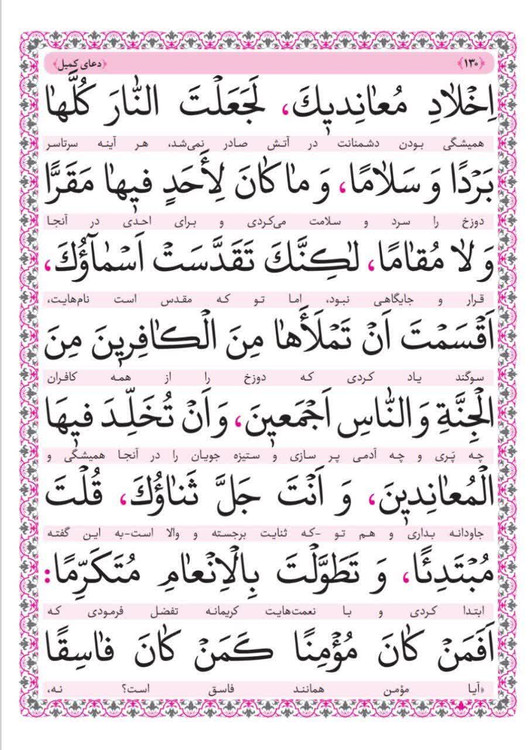 ﴿۱۳۰﴾ ﴿دعای کمیل﴾
اِخْلَادِ مُعَانِدِيكَ، لَجَعَلْتَ النَّارَ كُلَّهَا
همیشگی بودن دشمنانت در آتش صادر نمی‌شد، هر آینه سرتاسر
بَرْدًا وَ سَلَامًا، وَ مَا كَانَ لِأَحَدٍ فِيهَا مَقَرًّا
دوزخ را سرد و سلامت می‌کردی و برای احدی در آنجا
وَ لَا مُقَامًا، لٰكِنَّكَ تَقَدَّسَتْ اَسْمَآؤُكَ،
قرار و جایگاهی نبود، اما تو که مقدس است نام‌هایت،
اَقْسَمْتَ اَنْ تَمْلَأَهَا مِنَ الْكَافِرِينَ مِنَ
سوگند یاد کردی که دوزخ را از همه کافران
الْجِنَّةِ وَ النَّاسِ اَجْمَعِينَ، وَ اَنْ تُخَلِّدَ فِيهَا
چه پَری و چه آدمی پر سازی و ستیزه جویان را در آنجا همیشگی و
الْمُعَانِدِينَ، وَ اَنْتَ جَلَّ ثَنَاؤُكَ، قُلْتَ
جاودانه بداری و هم تو -که ثنایت برجسته و والا است-به این گفته
مُبْتَدِئًا، وَ تَطَوَّلْتَ بِالْاِنْعَامِ مُتَكَرِّمًا:
ابتدا کردی و با نعمت‌هایت کریمانه تفضل فرمودی که
اَفَمَنْ كَانَ مُؤْمِنًا كَمَنْ كَانَ فَاسِقًا
«آیا مؤمن همانند فاسق است؟ نه،